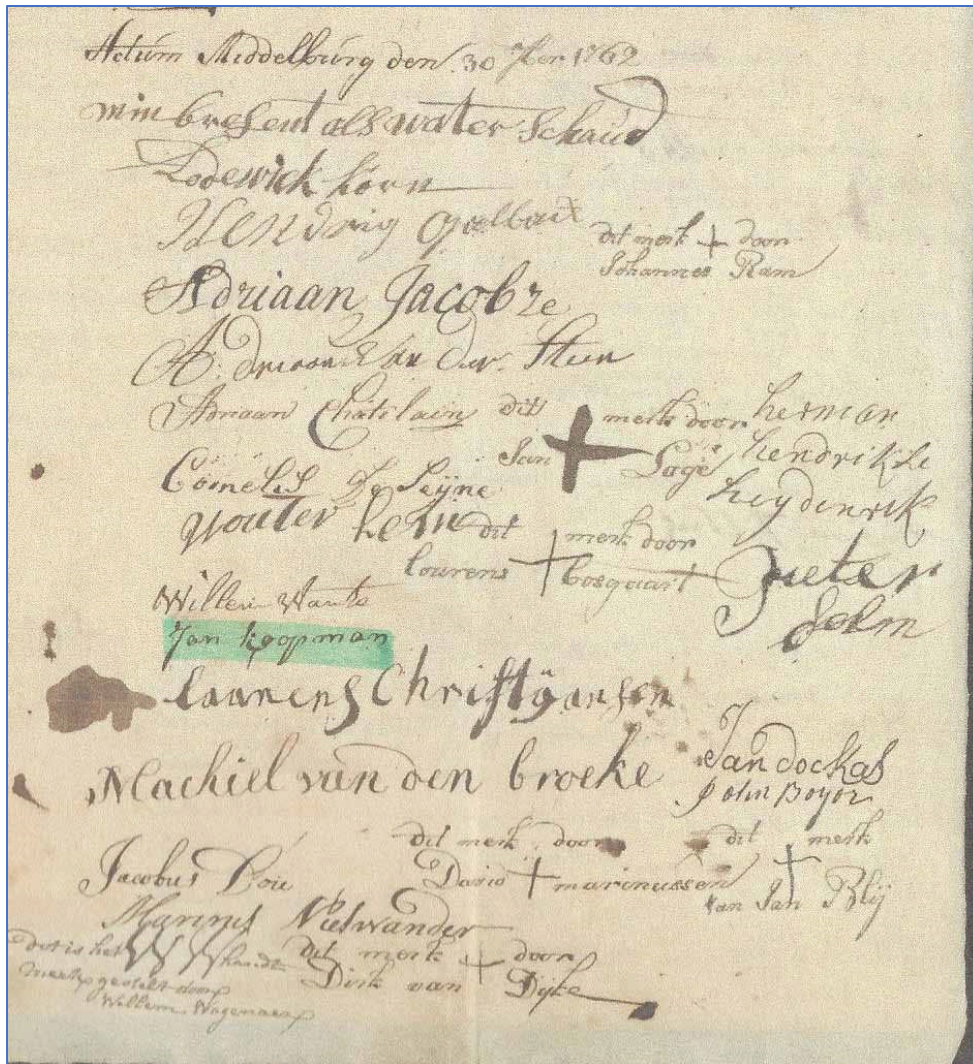 Actum Middelburg den 30 7ber 1762
min bresent als water schaud
Lodewick korn
Hendrig
dit merk + door
Johannes Ram
Adriaan Jacobze
A. van der Steen
Adriaan Châtelain
dit + merk door
Jan Sage
herman
hendrikze
heydenrik
Cornelis De Leijne
wouter
dit + merk door
lourens bosgaart
Pieter
Selm
Willem Wants
Jan koopman
laurens Christÿansen
Machiel van den broeke
Jan dockas
John Boyor
Jacobus
dit merk door
David + marinussen
dit merk
+
van Jan Blij
Marinus Nietwander
dit is het handt
merk gestelt door
Willem Wagenaer
dit merk + door
Dirk van Dijke